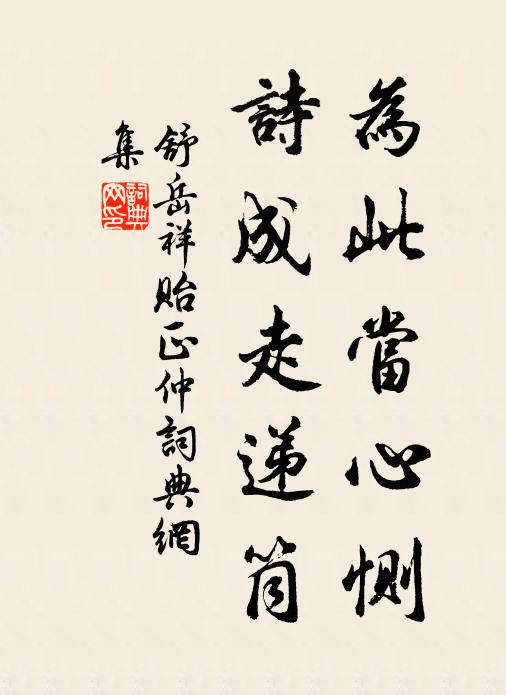 為此當心惻
詩成走递筒
舒岳祥貽正仲詞典網
集
詞典
网印